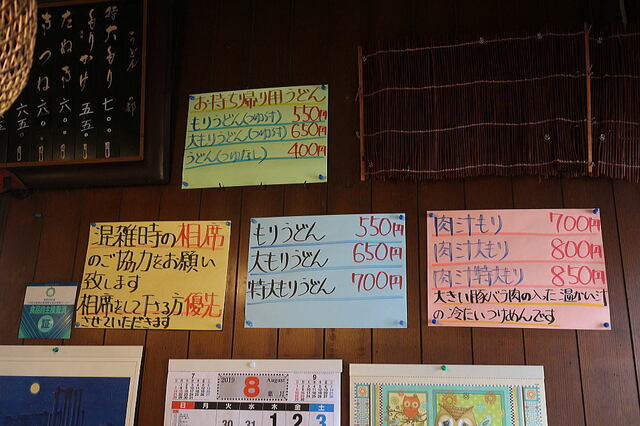 うどん 部
特大もり 七〇〇円
もりかけ 五五〇円
たぬき 六〇〇円
きつね 六五〇
お持ち帰り用うどん
もりうどん(つゆ付) 550円
大もりうどん(つゆ付) 650円
うどん(つゆなし) 400円
混雑時の相席
のご協力をお願い
致します
相席をして下さる方優先
させていただきます
もりうどん 550円
大もりうどん 650円
特大もりうどん 700円
肉汁もり 700円
肉汁大もり 800円
肉汁特大もり 850円
大きい豚バラ肉の入った温かい汁
の冷たいつけめんです
食品自主検査済
証
7
2019 8 August 葉月
9
日 月 火 水 木 金 土
30 31 1 2 3